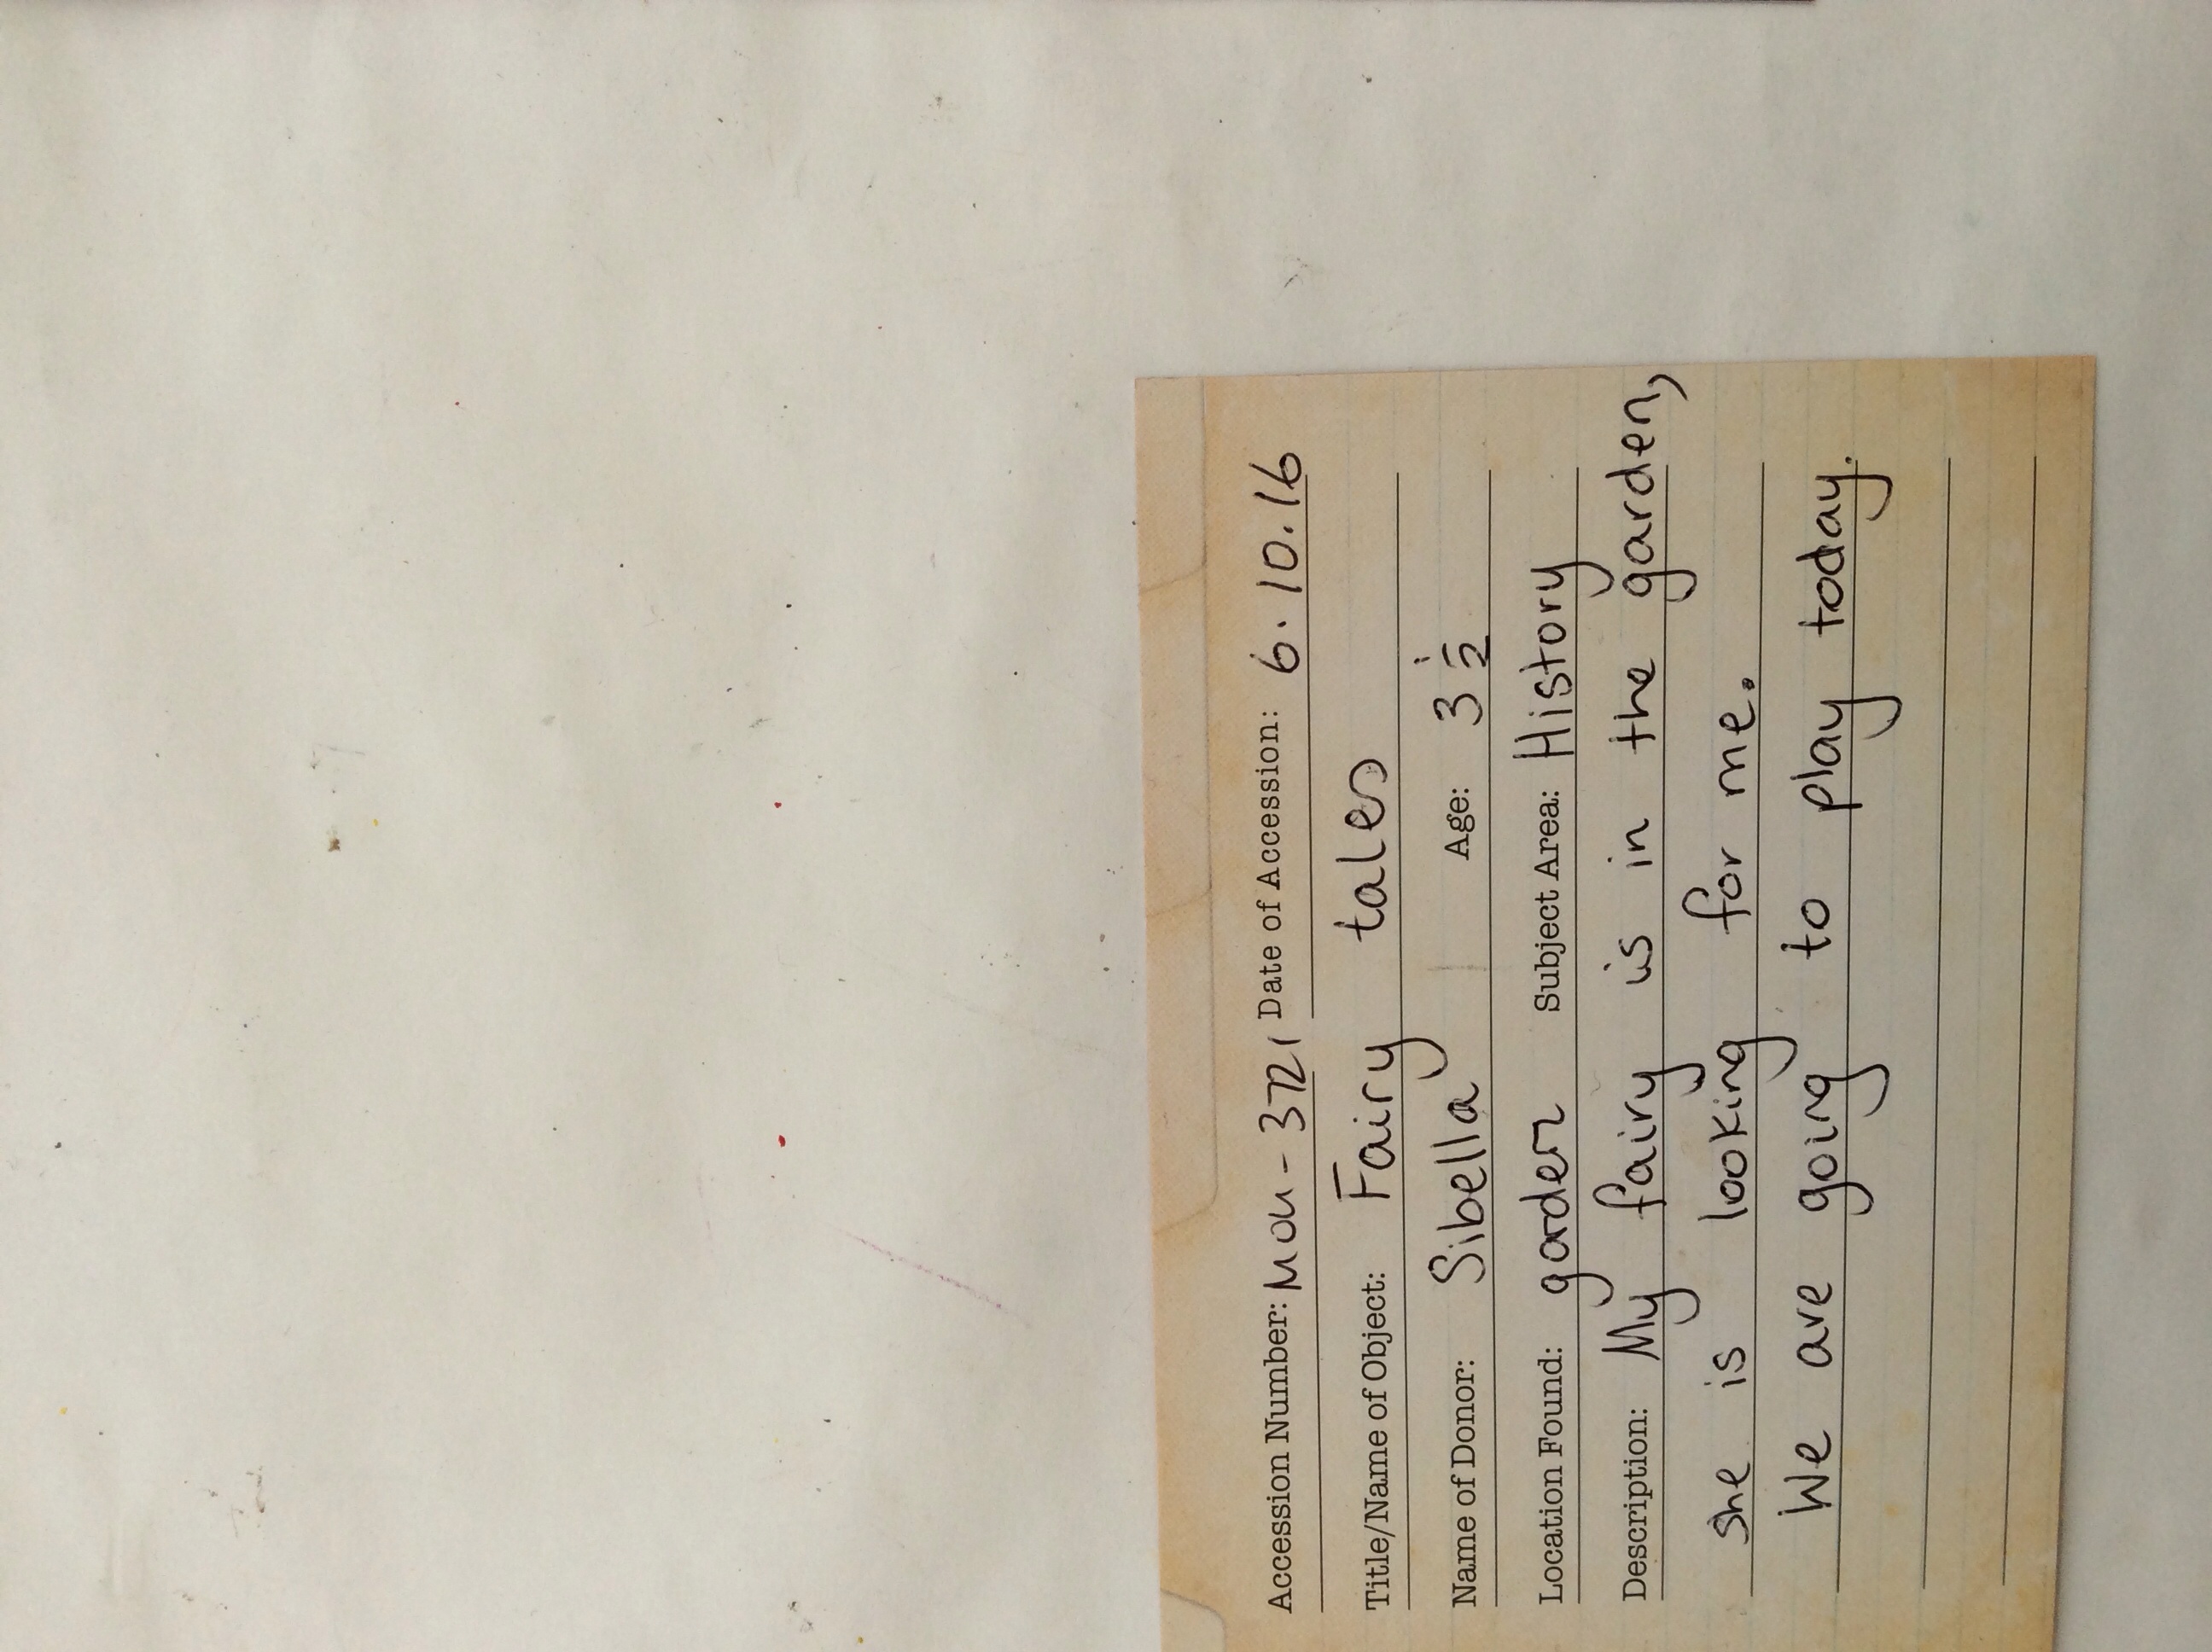 Accession Number: MOU-3721 Date of Accession: 6.10.16
Title/Name of Object: Fairy tales
Name of Donor: Sibella Age: 3 1/2
Location Found: garden Subject Area: History
Description: My fairy is in the garden,
she is looking for me.
We are going to play today.